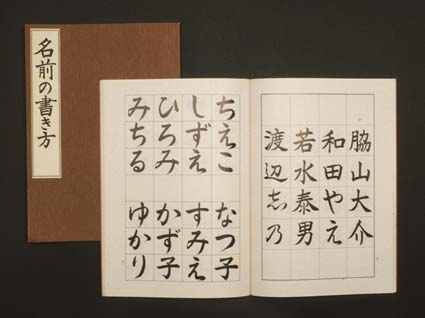 名前の書き方
脇山大介
和田やえ
若水泰男
渡辺志乃
ちえこ なつ子
しずえ すみえ
ひろみ かず子
みちる ゆかり